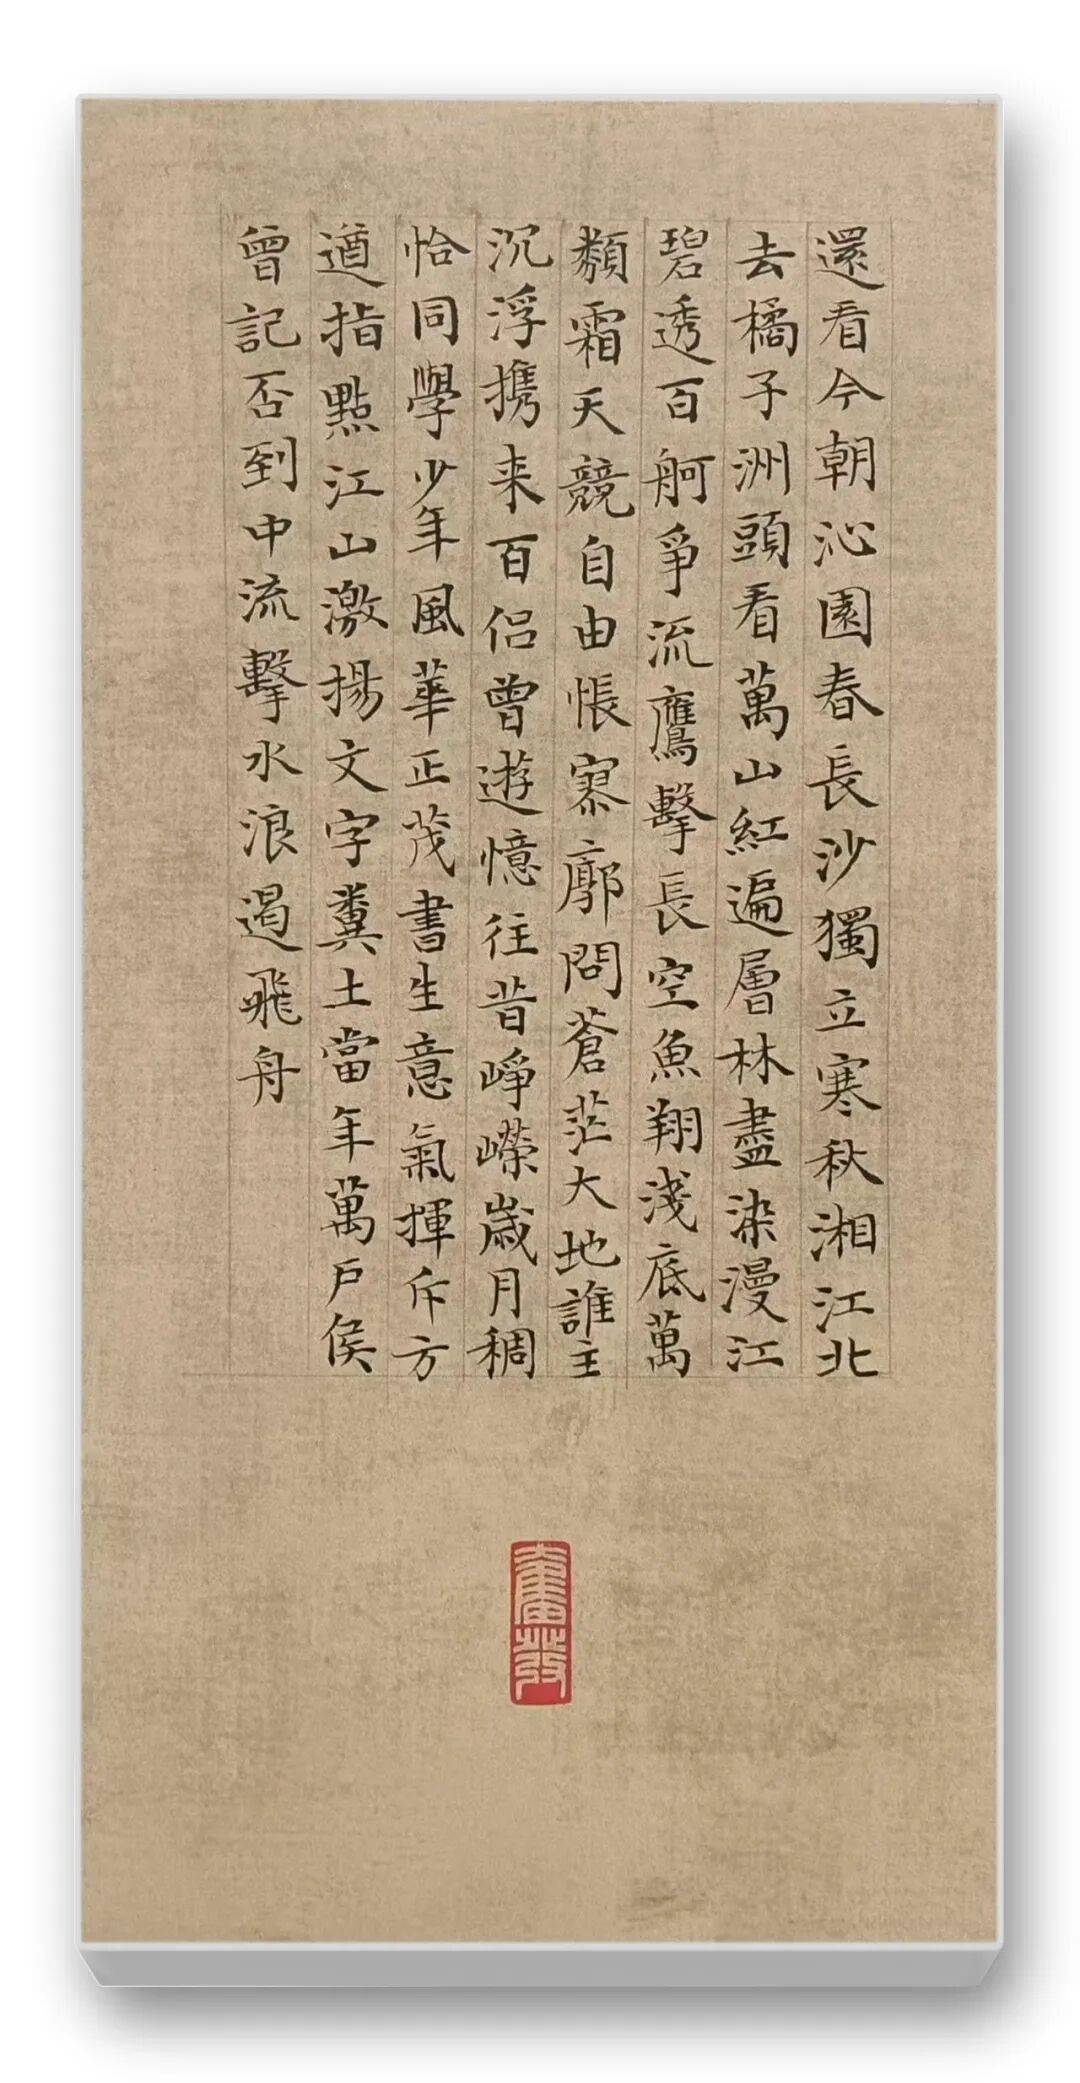 還看今朝沁園春長沙獨立寒秋湘江北
去橘子洲頭看萬山紅遍層林盡染漫江
碧透百舸爭流鷹擊長空魚翔淺底萬
類霜天競自由悵寥廓問蒼茫大地誰主
沉浮携来百侣曾遊憶往昔崢嶸歲月稠
恰同學少年風華正茂書生意氣揮斥方
遒指點江山激揚文字糞土當年萬戶侯
曾記否到中流擊水浪遏飛舟
奮發